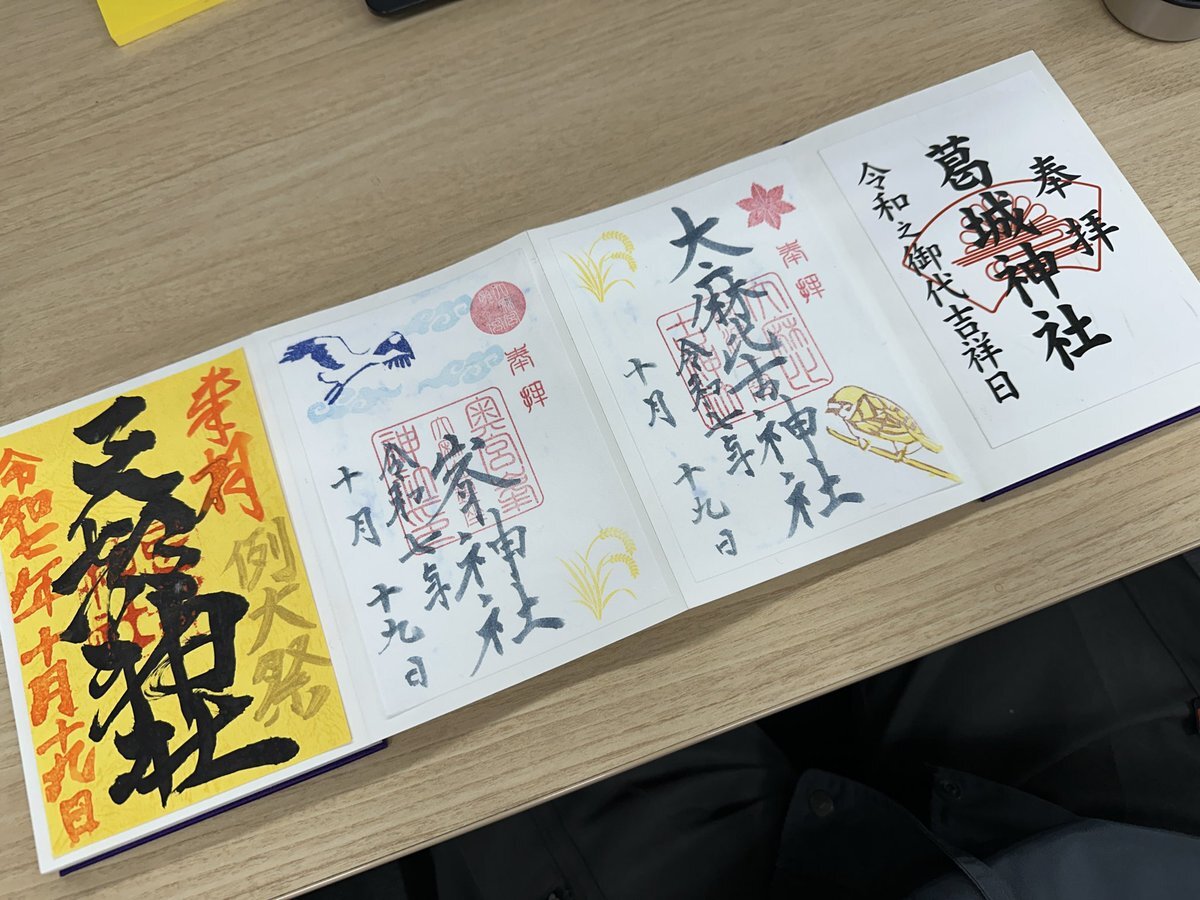 奉拝
葛城神社
令和之御代吉祥日
奉拝
大麻比古神社
令和七年
十月十九日
奉拝
峯神社
令和七年
十月十九日
奉拝
例大祭
神社
令和七年十月十九日